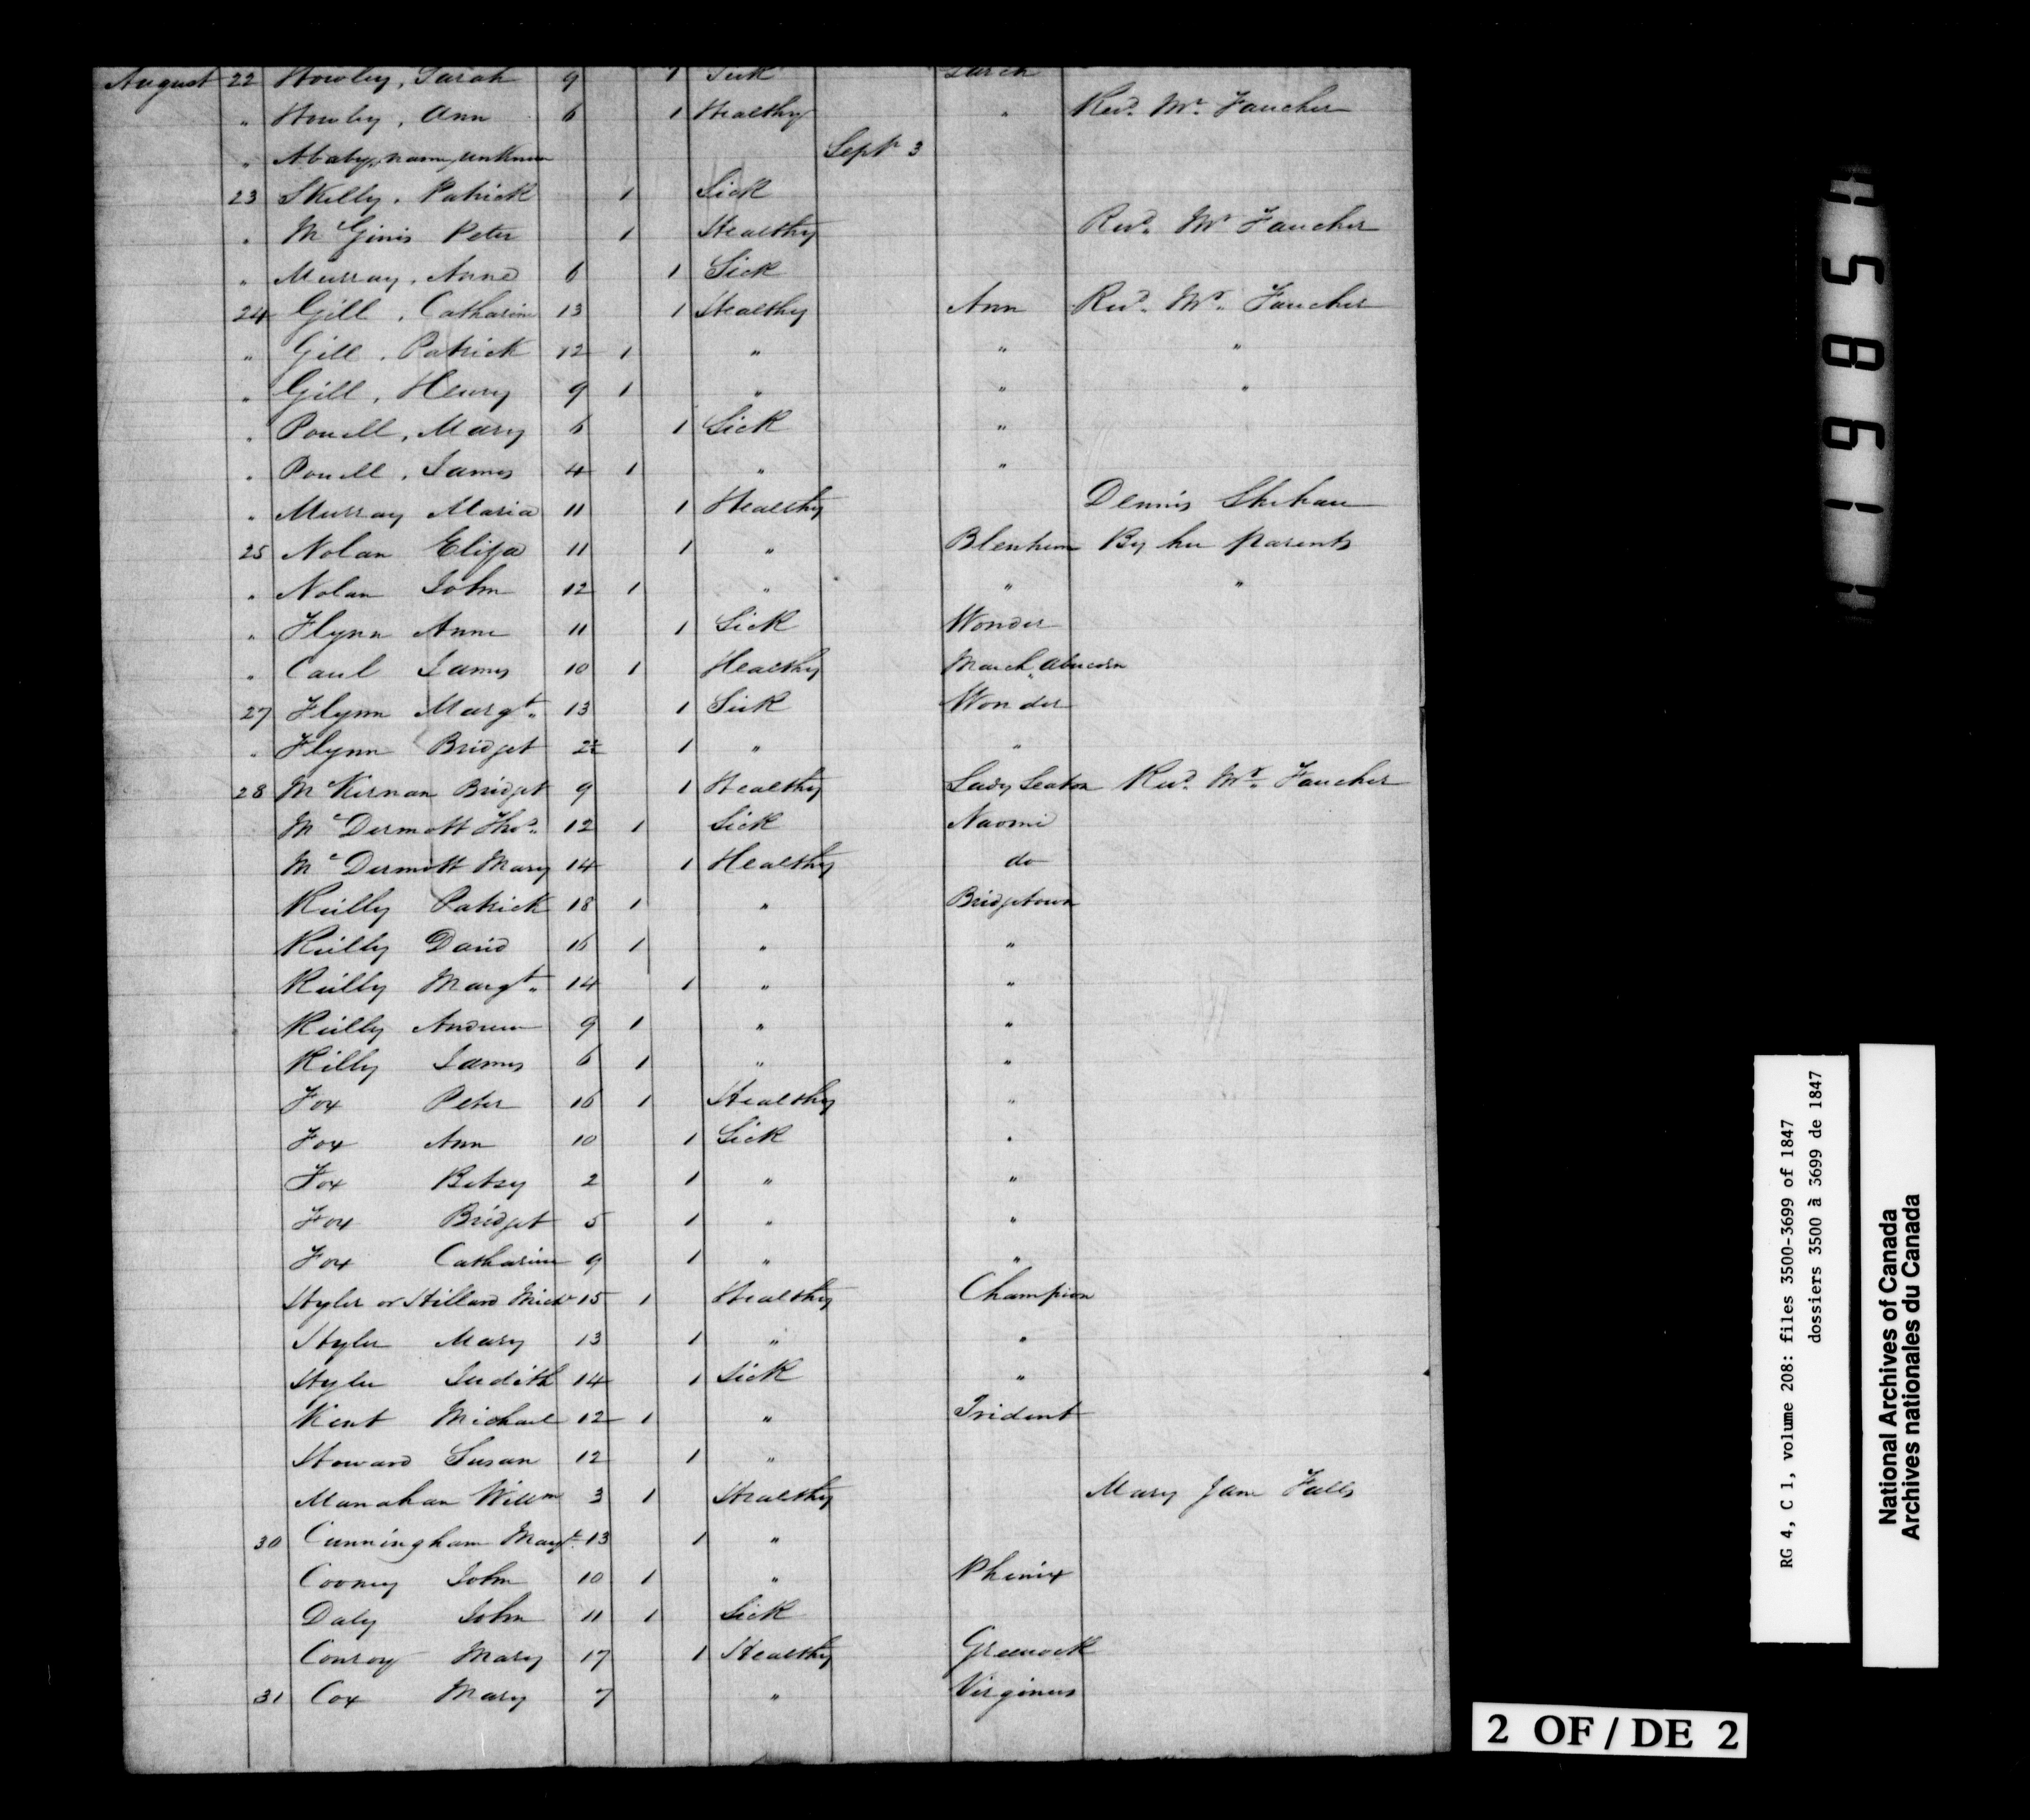 August 22 Howley, Sarah 9 1 Sick Larch
" Howley, Ann 6 1 Healthy " Revd. Mr. Faucher
" A baby, name unknown Sept. 3
23 Skelly, Patrick 1 Sick
" McGinis Peter 1 Healthy Revd. Mr Faucher
" Murray, Anne 6 1 Sick
24 Gill, Catharine 13 1 Healthy Ann Revd. Mr. Faucher
" Gill, Patrick 12 1 " " "
" Gill, Henry 9 1 " " "
" Powell, Mary 6 1 Sick "
" Powell, James 4 1 " "
" Murray Maria 11 1 Healthy Dennis Shehan
25 Nolan Eliza 11 1 " Blenheim By her parents
" Nolan John 12 1 " " "
" Flynn Anne 11 1 Sick Wonder
" Caul James 10 1 Healthy March. Abercorn
27 Flynn Margt. 13 1 Sick Wonder
" Flynn Bridget 2½ 1 " "
28 McKiernan Bridget 9 1 Healthy Lady Seaton Revd. Mr. Faucher
McDermott Thos. 12 1 Sick Naomi
McDermott Mary 14 1 Healthy do
Reilly Patrick 18 1 " Bridgetown
Reilly David 16 1 " "
Reilly Margt. 14 1 " "
Reilly Andrew 9 1 " "
Rilly James 6 1 " "
Fox Peter 16 1 Healthy "
Fox Ann 10 1 Sick "
Fox Betsy 2 1 " "
Fox Bridget 5 1 " "
Fox Catharine 9 1 " "
Hyler or Hillard Michl 15 1 Healthy Champion
Hyler Mary 13 1 " "
Hyler Judith 14 1 Sick "
Kent Michael 12 1 " Trident
Howard Susan 12 1 "
Manahan Willm 3 1 Healthy Mary Jane Falls
30 Cunningham Margt. 13 1 "
Cooney John 10 1 " Phenix
Daly John 11 1 Sick
Conroy Mary 17 1 Healthy Greenock
31 Cox Mary 7 " Virginius
+ 5 8 6 1 +
RG 4, C 1, volume 208: files 3500-3699 of 1847
dossiers 3500 à 3699 de 1847
National Archives of Canada
Archives nationales du Canada
2 OF / DE 2